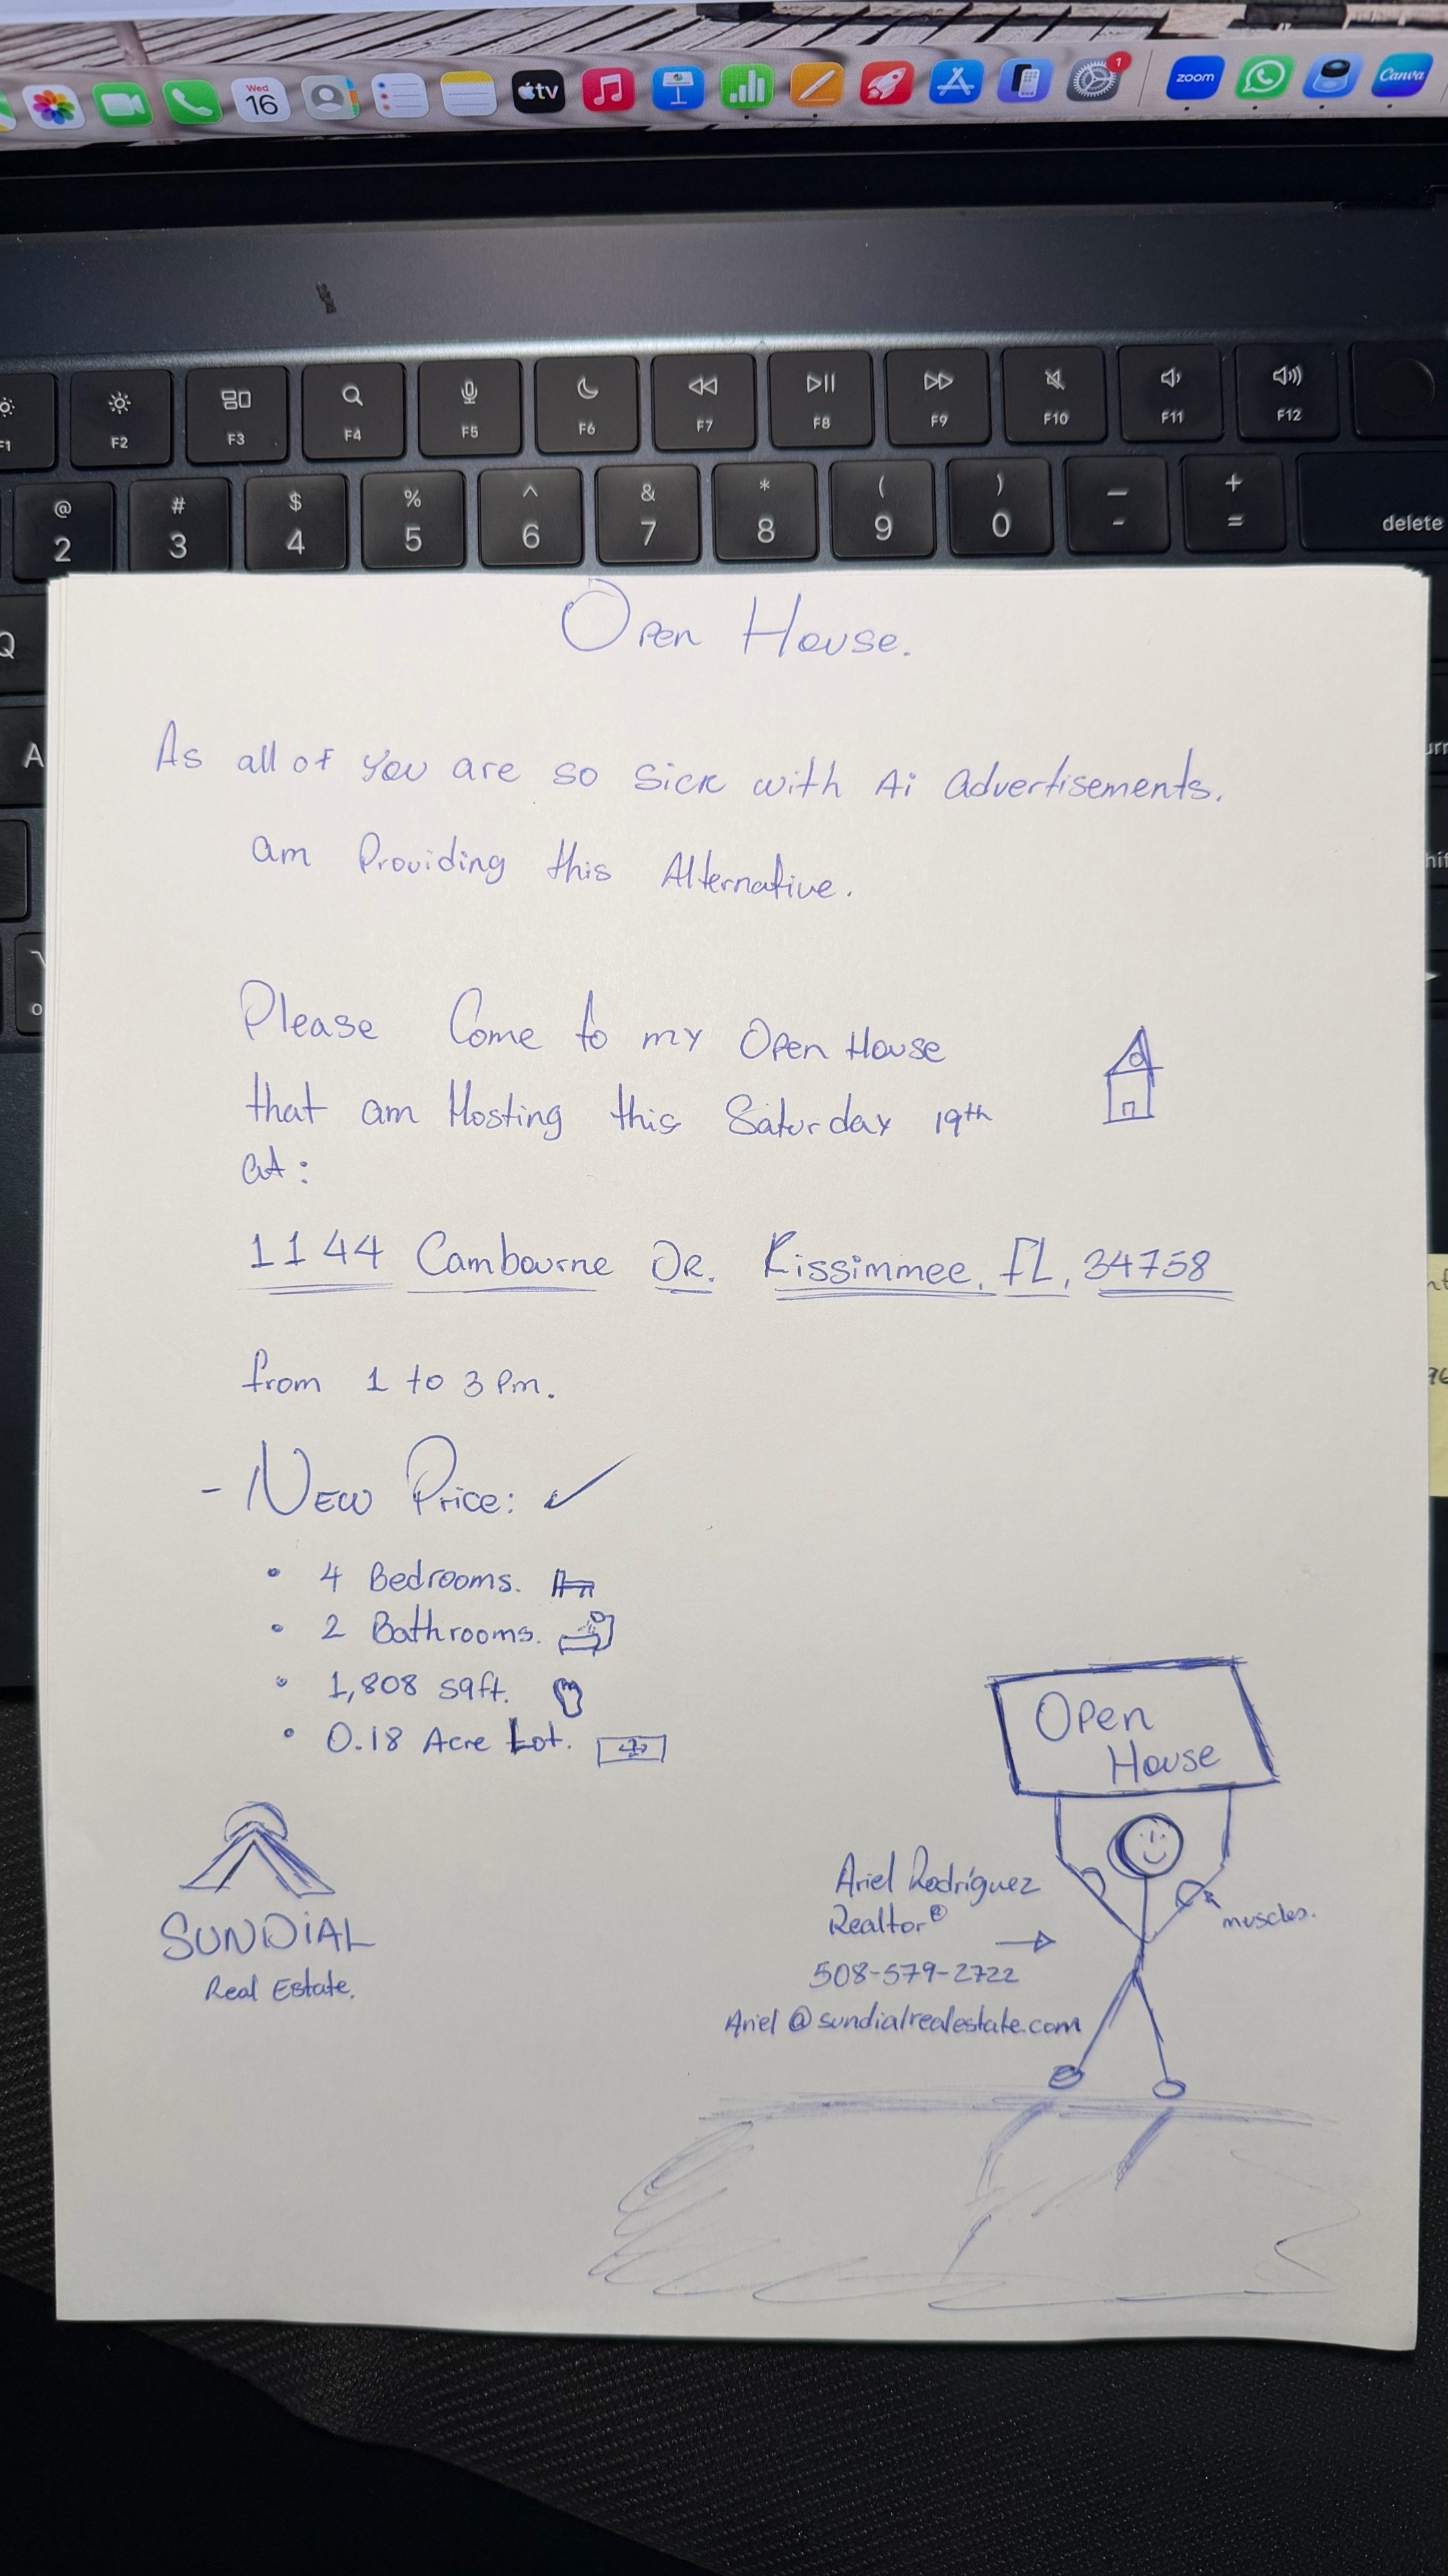 Wed
16
tv
1
zoom
Canva
F1
F2
F3
F4
F5
F6
F7
F8
F9
F10
F11
F12
@ # $ % ^ & * ( ) — +
2 3 4 5 6 7 8 9 0 - = delete
Q
A
Open House.
As all of you are so sick with Ai Advertisements.
am Providing this Alternative.
Please Come to my Open House
that am Hosting this Saturday 19th
at:
1144 Cambourne DR. Kissimmee, FL, 34758
from 1 to 3 Pm.
- New Price: ✓
• 4 Bedrooms.
• 2 Bathrooms.
• 1,808 sqft.
• 0.18 Acre Lot.
SUNDiAL
Real Estate.
Open
House
muscles.
Ariel Rodríguez
Realtor®
508-579-2722
Ariel@sundialrealestate.com